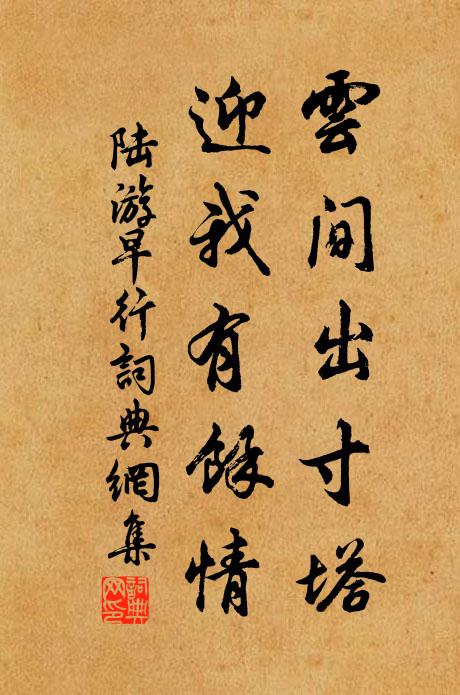 雲間出寸塔
迎我有餘情
陆游早行詞典網集
詞典网印